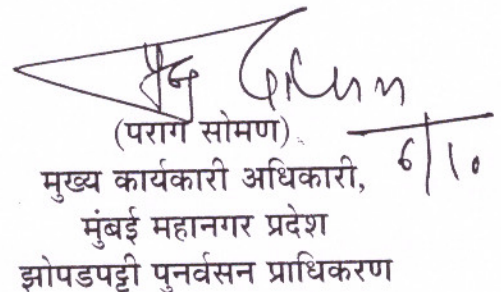 (पराग सोमण)
6/10
मुख्य कार्यकारी अधिकारी,
मुंबई महानगर प्रदेश
झोपडपट्टी पुनर्वसन प्राधिकरण